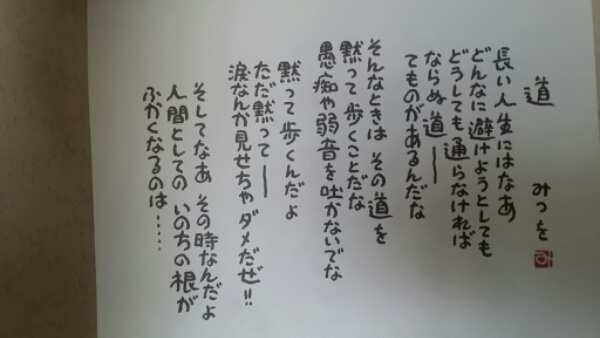 道
みつを
み
長い人生にはなあ
どんなに避けようとしても
どうしても通らなければ
ならぬ道――
てものがあるんだな
そんなときは その道を
黙って歩くことだな
愚痴や弱音を吐かないでな
黙って歩くんだよ
ただ黙って――
涙なんか見せちゃダメだぜ!!
そしてなあ その時なんだよ
人間としての いのちの根が
ふかくなるのは……